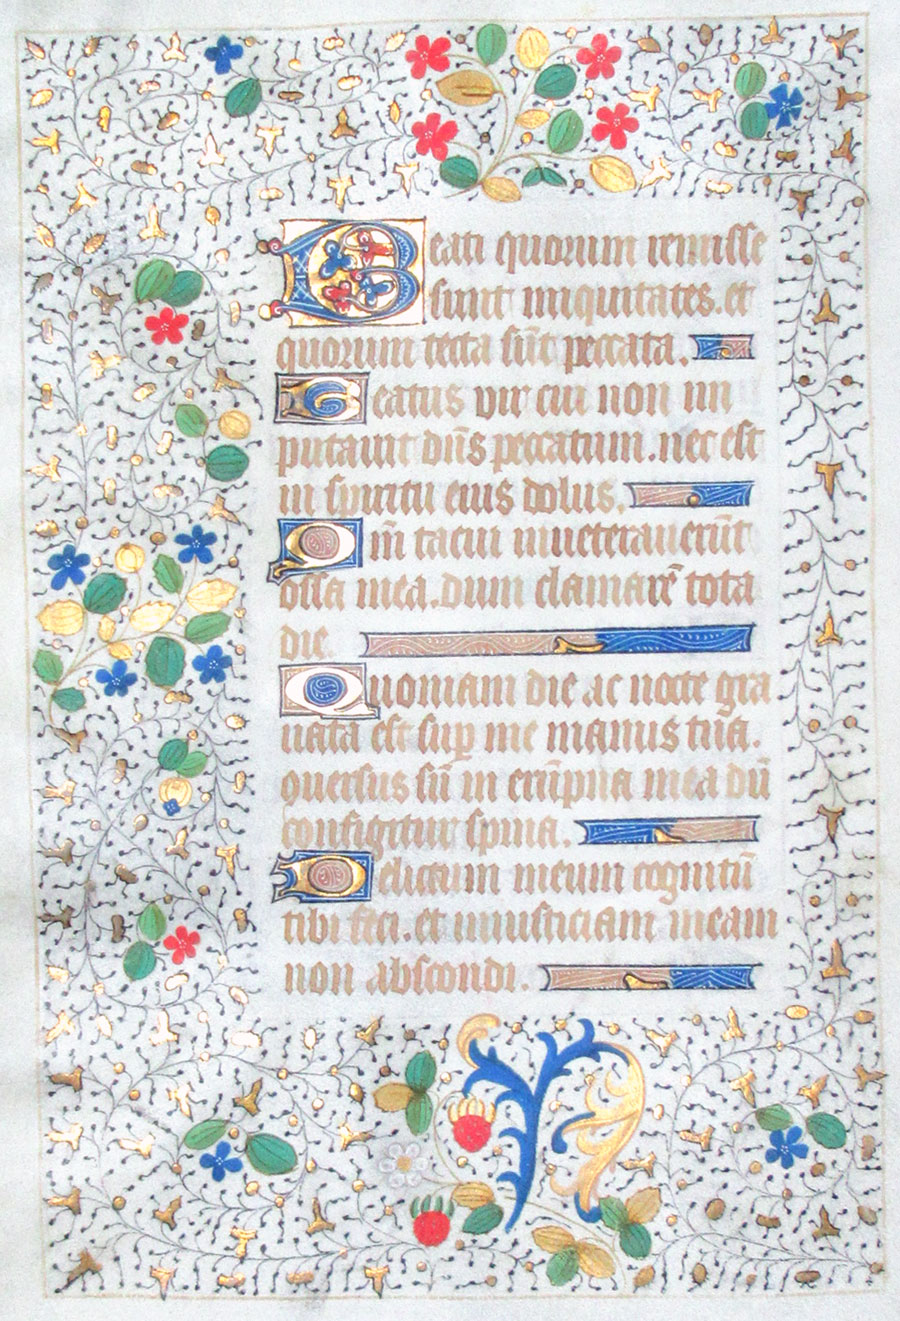 Beati quorum remisse
sunt iniquitates. et
quorum tecta sūt peccata.
Beatus vir cui non im
putavit dn̄s peccatum. nec est
in spiritu eius dolus.
Qm̄ tacui inveteraverūt
ossa mea. dum clamarē tota
die.
Quoniam die ac nocte gra
vata est suꝑ me manus tua.
ꝯversus sū in erūpna mea dū
configitur spina.
Delictum meum cognitū
tibi feci. et iniusticiam meam
non abscondi.